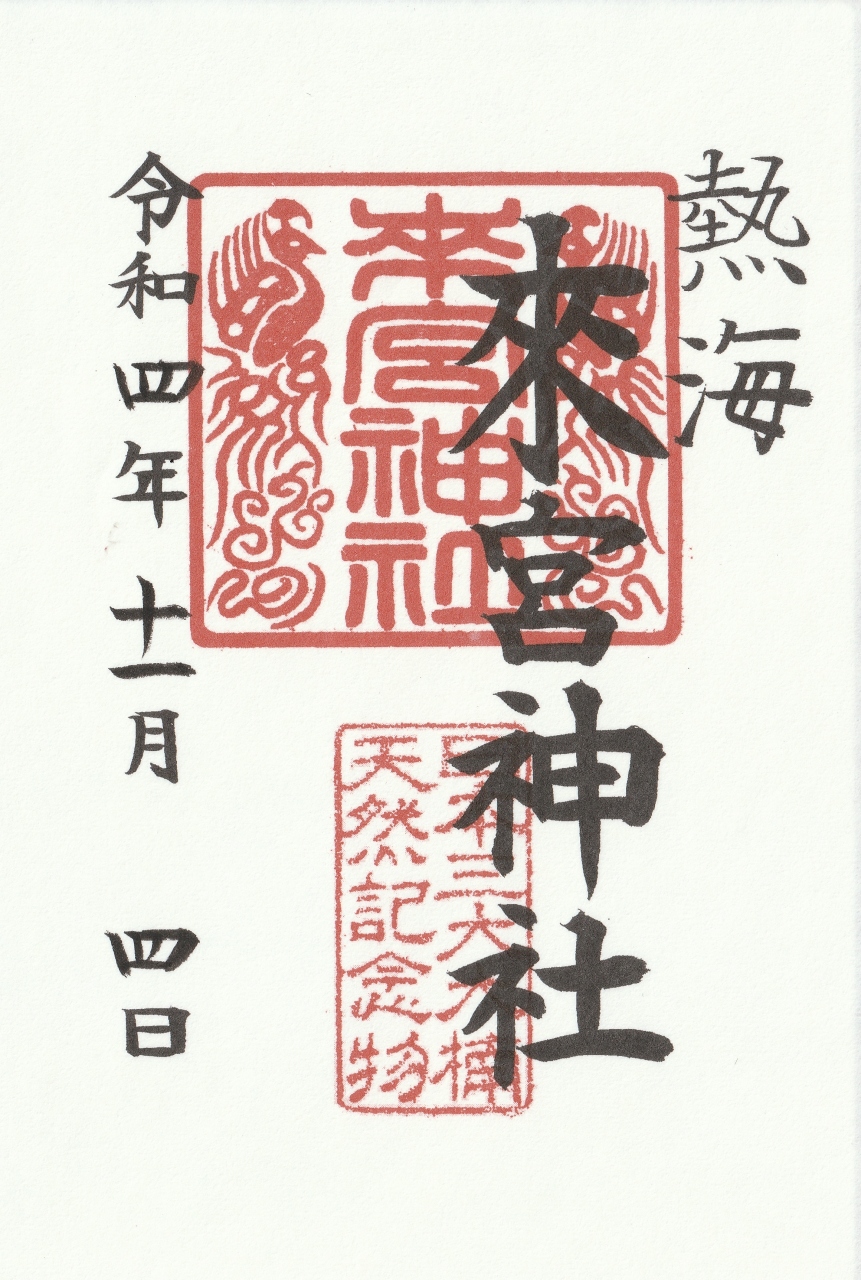 熱海
來宮神社
來宮神社
日本三大大楠
天然記念物
令和四年十一月四日